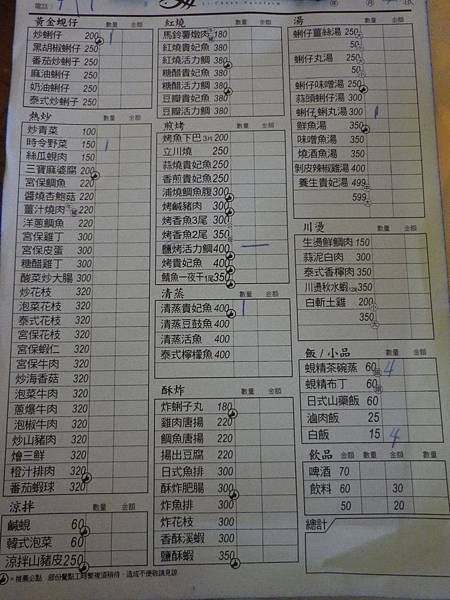 電話：
Li Chuan Aquafarm
黃金蜆仔 數量 金額
炒蜊仔 200 1
黑胡椒蜊仔 250
番茄炒蜊子 250
麻油蜊仔 250
奶油蜊仔 250
泰式炒蜊子 250
熱炒 數量 金額
炒青菜 100
時令野菜 150 1
絲瓜蜆肉 150
三寶麻婆腐 200
宮保鯛魚 220
醬燒杏鮑菇 220
薑汁燒肉 220
洋蔥鯛魚 220
宮保雞丁 300
宮保皮蛋 300
糖醋雞丁 300
酸菜炒大腸 300
炒花枝 320
泡菜花枝 320
泰式花枝 320
宮保花枝 320
宮保蝦仁 320
宮保牛肉 320
炒海香菇 320
泡菜牛肉 320
蔥爆牛肉 320
泡椒牛肉 320
炒山豬肉 320
燴三鮮 320
橙汁排肉 320
番茄蝦球 320
涼拌 數量 金額
鹹蜆 60
韓式泡菜 60
涼拌山豬皮 250
=推薦必點 部份餐點工時繁複須稍待，造成不便敬請見諒
紅燒 數量 金額
馬鈴薯燉肉 180
紅燒貴妃魚 380
紅燒活力鯛 380
糖醋貴妃魚 380
糖醋活力鯛 380
豆瓣貴妃魚 380
豆瓣活力鯛 380
煎烤 數量 金額
烤魚下巴 3片 200
立川燒 250
蒜燒貴妃魚 250
香煎貴妃魚 250
蒲燒鯛魚腹 300
烤鹹豬肉 300
烤香魚2尾 300
烤香魚2尾 350
鹽烤活力鯛 400
烤貴妃魚 400
鯖魚一夜干 1尾 350
清蒸 數量 金額
清蒸貴妃魚 400 1
清蒸豆鼓魚 400
清蒸活魚 400
泰式檸檬魚 400
酥炸 數量 金額
炸蜊子丸 180
雞肉唐揚 220
鯛魚唐揚 220
揚出豆腐 220
日式魚排 300
酥炸肥腸 300
炸魚排 300
炸花枝 300
香酥溪蝦 300
鹽酥蝦 350
湯 數量 金額
蜊仔薑絲湯 250
50
蜊仔丸湯 250
50
蜊仔味噌湯 250
蒜頭蜊仔湯 300
蜊仔蜊丸湯 300 1
鮮魚湯 350
味噌魚湯 350
燒酒魚湯 350
剝皮辣椒雞湯 400
養生貴妃湯 499
599
川燙 數量 金額
生燙鮮鯛肉 150
蒜泥白肉 300
泰式香檸肉 350
川燙秋水蝦 350
白斬土雞 200
350
飯/小品 數量 金額
蜆精茶碗蒸 60 4
蜆精布丁 60
日式山藥飯 60
滷肉飯 25
白飯 15 4
飲品 金額 數量 金額
啤酒 70
飲料 60 30
50 20
總計